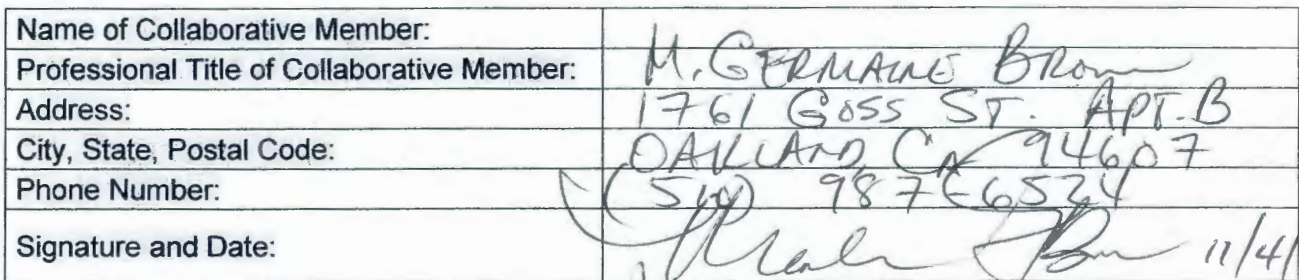 Name of Collaborative Member:
Professional Title of Collaborative Member: M. GERMAINE BROWN
Address: 1761 GOSS ST. APT. B
City, State, Postal Code: OAKLAND, CA 94607
Phone Number: (510) 987-6524
Signature and Date: 11/4/